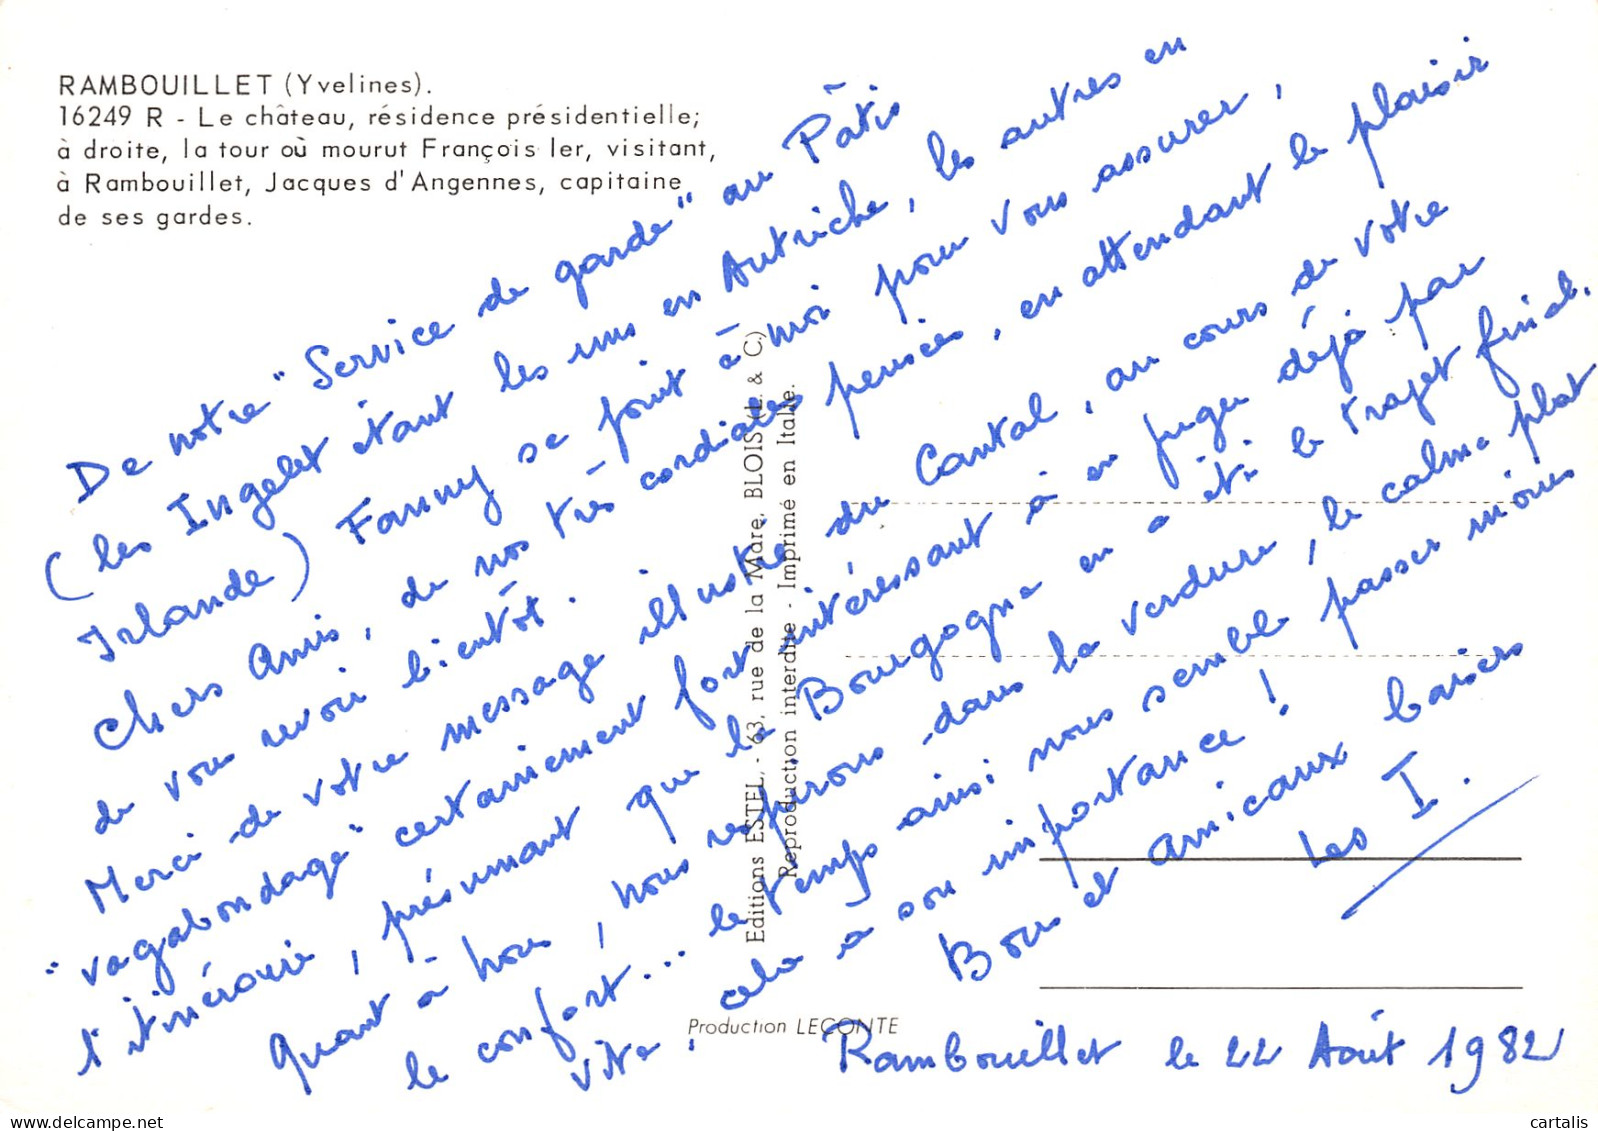 RAMBOUILLET (Yvelines).
16249 R - Le château, résidence présidentielle;
à droite, la tour où mourut François Ier, visitant,
à Rambouillet, Jacques d'Angennes, capitaine
de ses gardes.
De notre "Service de garde" au Pâtis
(les Ingelet étant les uns en Autriche, les autres en
Irlande) Fanny se joint à moi pour vous assurer,
Chers Amis, de nos très cordiales pensées, en attendant le plaisir
de vous revoir bientôt.
Merci de votre message illustré du Cantal, au cours de votre
"vagabondage" certainement fort intéressant à en juger déjà par
l'itinéraire, présumant que la Bourgogne en a été le trajet final.
Quant à nous, nous respirons dans la verdure, le calme plat
le confort... le temps ainsi nous semble passer moins
vite, cela a son importance!
Bons et Amicaux baisers
Les I.
Rambouillet le 22 Août 1982
Editions ESTEL, - 63, rue de la Mare, BLOIS (L. & C.)
Reproduction interdite - Imprimé en Italie.
Production LECONTE
cartalis